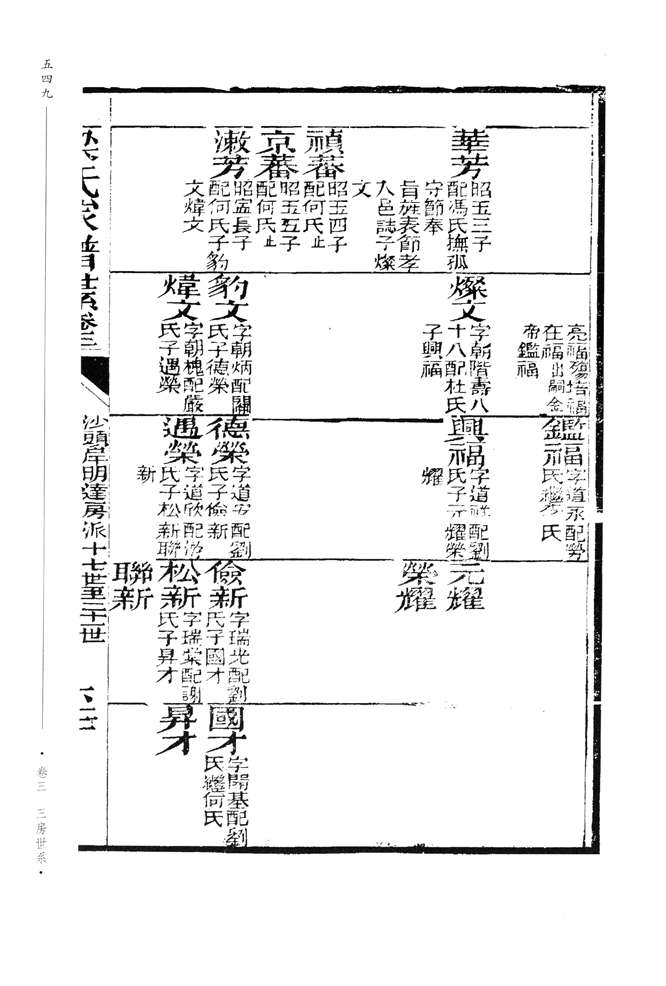 亮福殤培福
在福出嗣金
帝鑑福
鑑福
字道永配勞
氏繼 氏
華芳
昭玉三子
配馮氏撫孤
守節奉
旨旌表節孝
入邑誌子燦
文
燦文
字朝階壽八
十八配杜氏
子興福
興福
字道祥配劉
氏子元耀榮
耀
元耀
榮耀
禎蕃
昭玉四子
配何氏止
京蕃
昭玉五子
配何氏止
漱芳
昭寍長子
配何氏子豹
文煒文
豹文
字朝炳配關
氏子德榮
德榮
字道安配劉
氏子儉新
儉新
字瑞光配劉
氏子國才
國才
字開基配劉
氏繼何氏
煒文
字朝槐配嚴
氏子遇榮
遇榮
字道欣配
氏子松新聯
新
松新
字瑞棠配謝
氏子昇才
昇才
聯新
氏家譜世系卷三
沙頭岸明達房派十七世至二十一世
五四九
·卷三 三房世系·